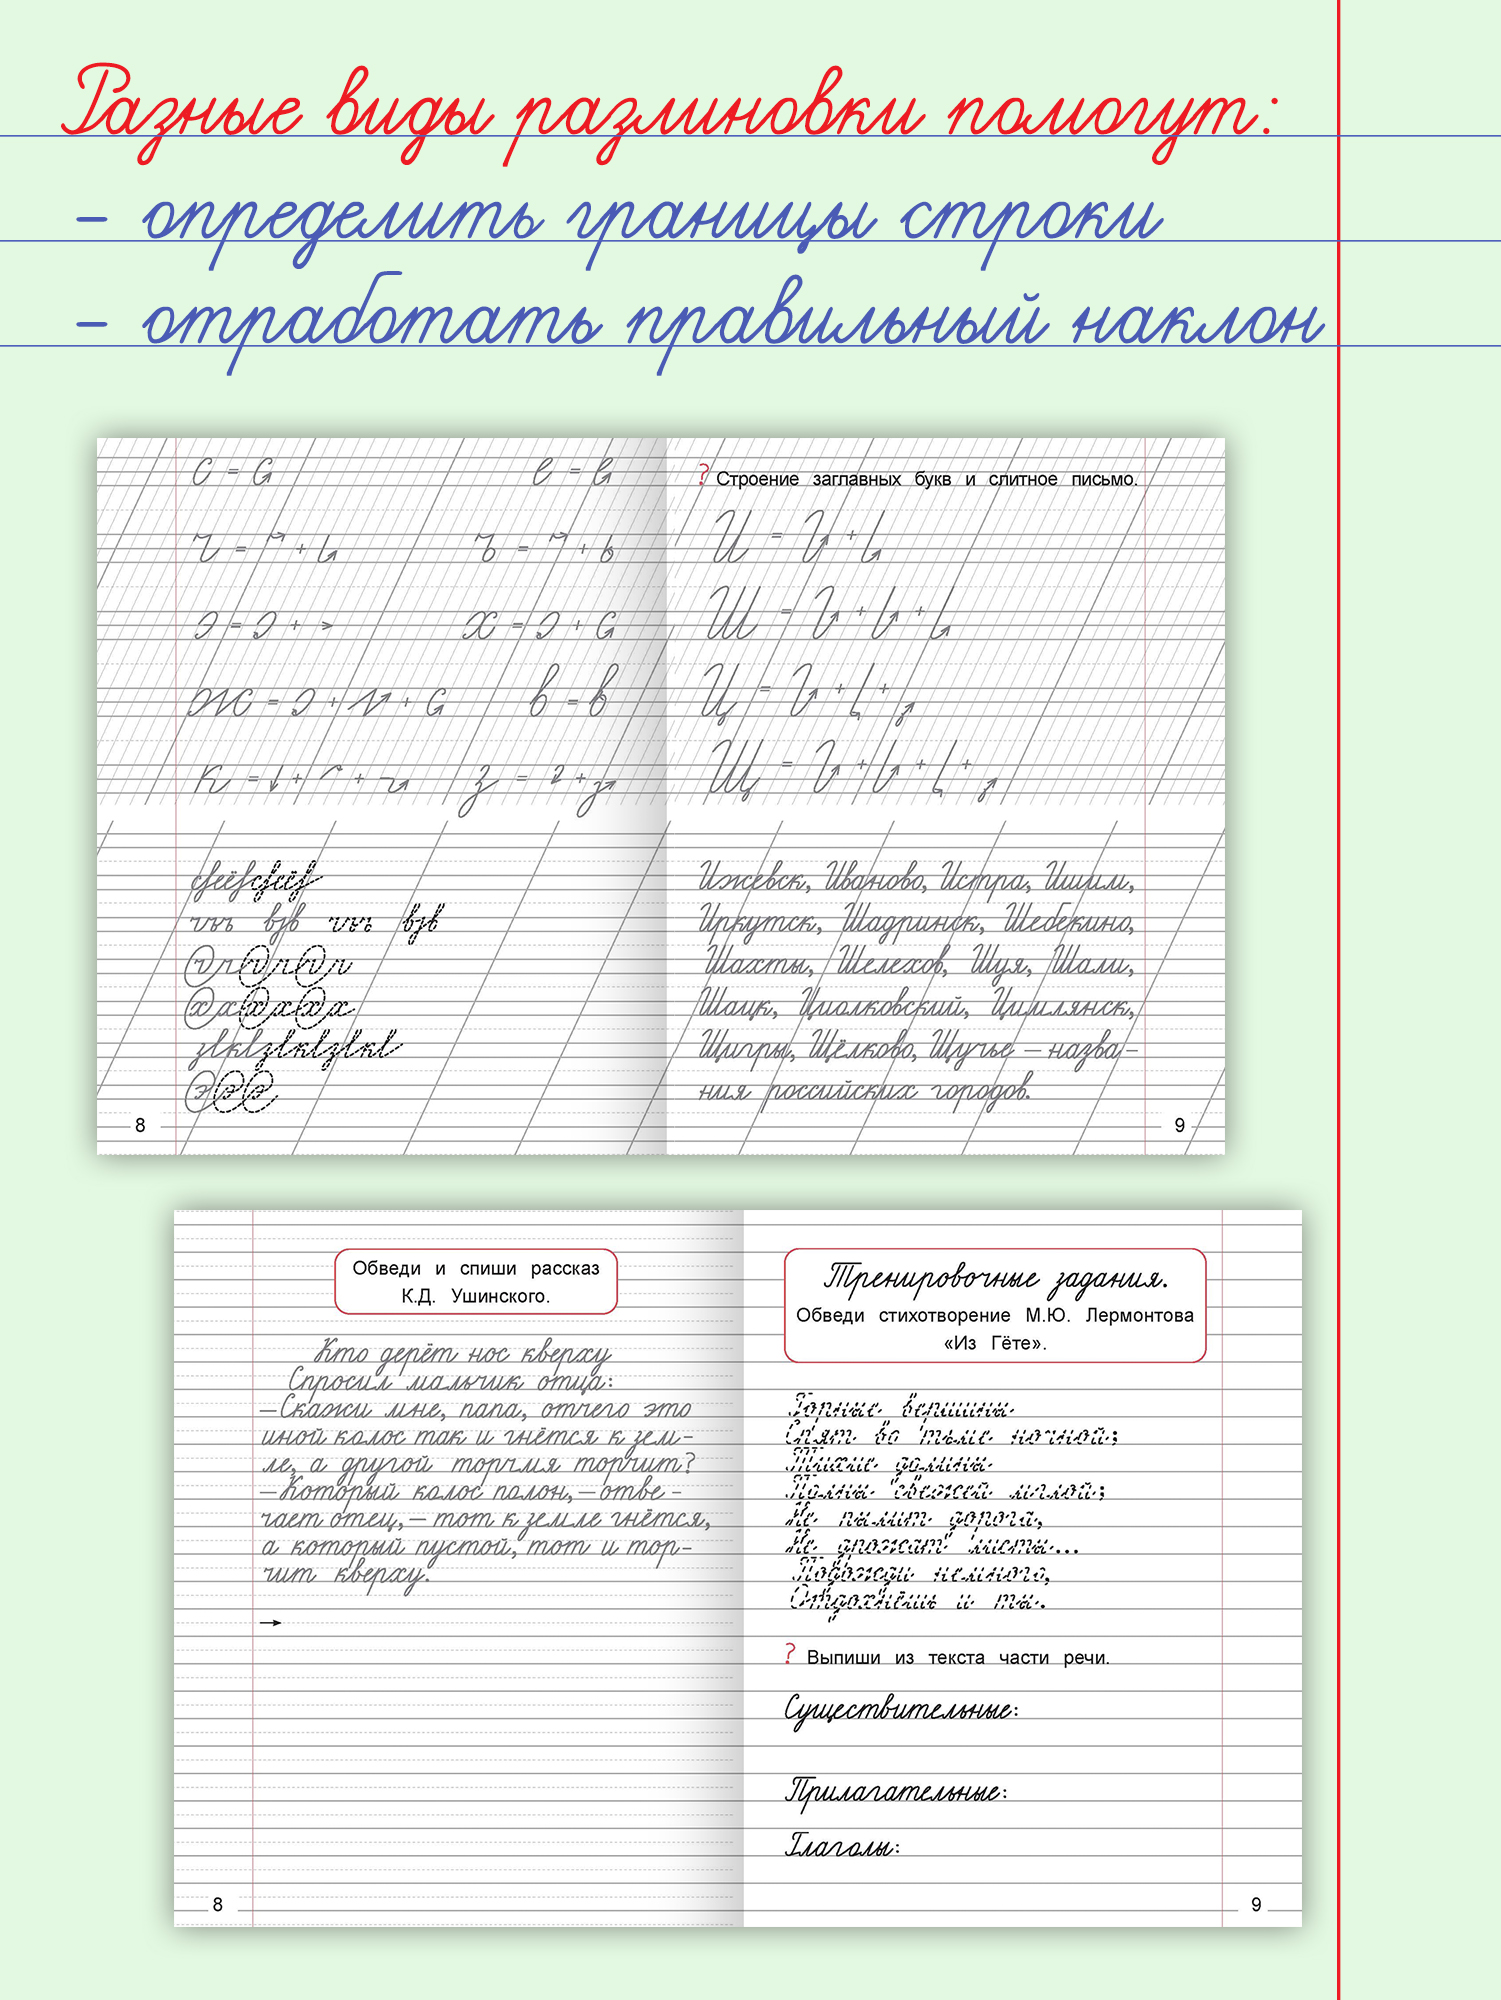 Разные виды разлиновки помогут:
- определить границы строки
- отработать правильный наклон
с = с е = е
? Строение заглавных букв и слитное письмо.
ч = + ъ = +
И = +
э = э + х = э + с
Ш = + +
ж = э + + с в = в
Ц = + +
к = + + з = +
Щ = + + +
Ижевск, Иваново, Истра, Ишим,
Иркутск, Шадринск, Шебекино,
Шахты, Шелехов, Шуя, Шали,
Шацк, Циолковский, Цимлянск,
Щигры, Щёлково, Щучье – назва-
ния российских городов.
8
9
Обведи и спиши рассказ
К.Д. Ушинского.
Кто дерёт нос кверху
Спросил мальчик отца:
– Скажи мне, папа, отчего это
иной колос так и гнётся к зем-
ле, а другой торчмя торчит?
– Который колос полон, – отве-
чает отец, – тот к земле гнётся,
а который пустой, тот и тор-
чит кверху.
→
8
Тренировочные задания.
Обведи стихотворение М.Ю. Лермонтова
«Из Гёте».
Горные вершины
Спят во тьме ночной;
Тихие долины
Полны свежей мглой;
Не пылит дорога,
Не дрожат листы...
Подожди немного,
Отдохнёшь и ты.
? Выпиши из текста части речи.
Существительные:
Прилагательные:
Глаголы:
9